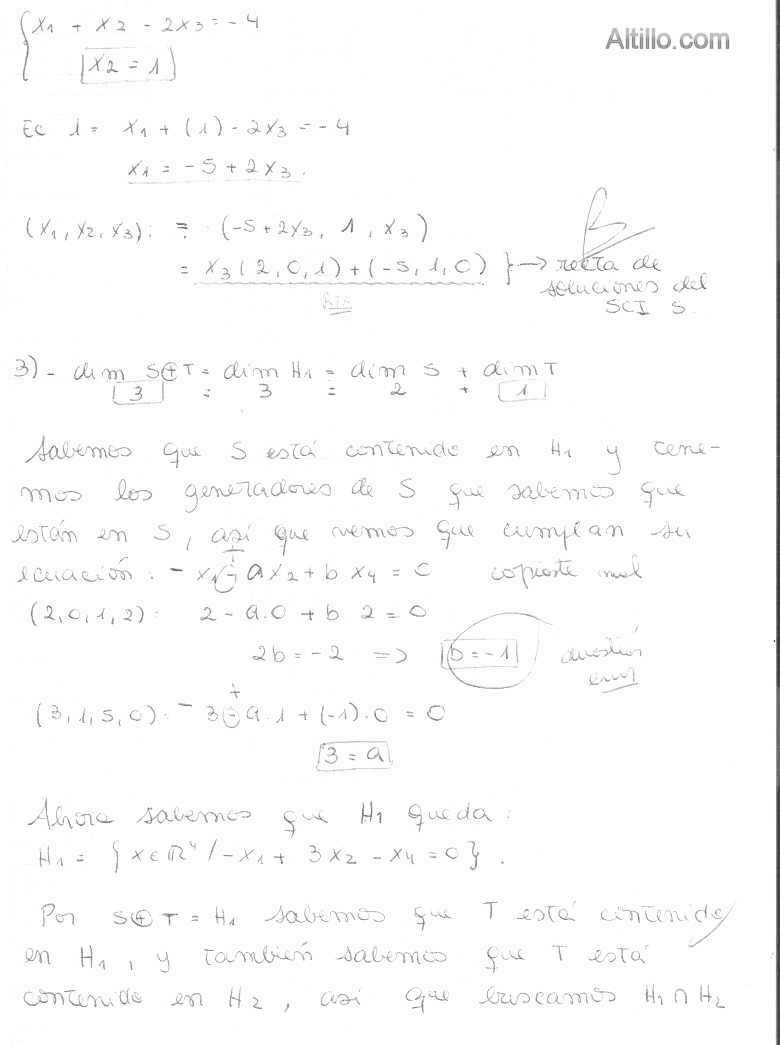 x1 + x2 - 2x3 = -4
Altillo.com
x2 = 1
Ec 1 = x1 + (1) - 2x3 = -4
x1 = -5 + 2x3.
(x1, x2, x3): = (-5+2x3, 1, x3)
= x3(2,0,1) + (-5,1,0) } → recta de
soluciones del
SCI S.
Bie
B
3) - dim S⊕T = dim H1 = dim S + dim T
3 = 3 = 2 + 1
Sabemos que S está contenido en H1 y tene-
mos los generadores de S que sabemos que
están en S, así que vemos que cumplan su
ecuación: - x1 - + a x2 + b x4 = 0 copiaste mal
(2,0,1,2): 2 - a.0 + b 2 = 0
2b = -2 => b = -1
(3,1,5,0): - 3 - + a.1 + (-1).0 = 0
3 = a
Ahora sabemos que H1 queda:
H1 = { x ∈ R⁴ / -x1 + 3x2 - x4 = 0 }.
Por S⊕T = H1 sabemos que T está contenido
en H1, y también sabemos que T está
contenido en H2, así que buscamos H1 ∩ H2